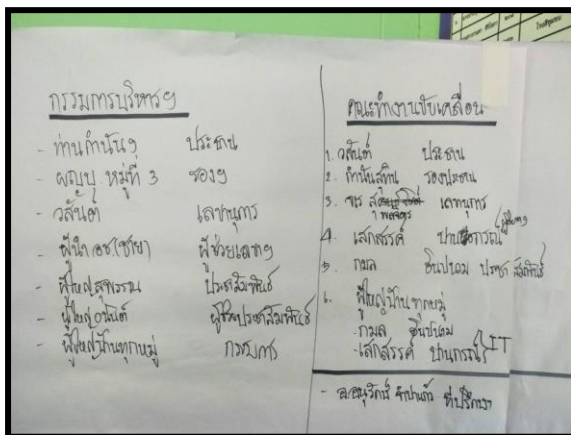 กรรมการบริหารฯ
- ท่านกำนันฯ ประธาน
- ผญบ. หมู่ที่ 3 รองฯ
- วสันต์ เลขานุการ
- ผู้นำอช.(ชาย) ผู้ช่วยเลขาฯ
- ผู้ใหญ่สุพรรณ ประชาสัมพันธ์
- ผู้ใหญ่อนันต์ ผู้ช่วยประชาสัมพันธ์
- ผู้ใหญ่บ้านทุกหมู่ กรรมการ
คณะทำงานขับเคลื่อน
1. วสันต์ ประธาน
2. กำนันสุทิน รองประธาน
3. เลขานุการ
4. เสกสรรค์ ปานกรณ์
5. กมล อินปนวม ประชาสัมพันธ์
6. ผู้ใหญ่บ้านทุกหมู่
- กมล อินปนวม
- เสกสรรค์ ปานกรณ์ IT
- อ.อนุรักษ์ ที่ปรึกษา